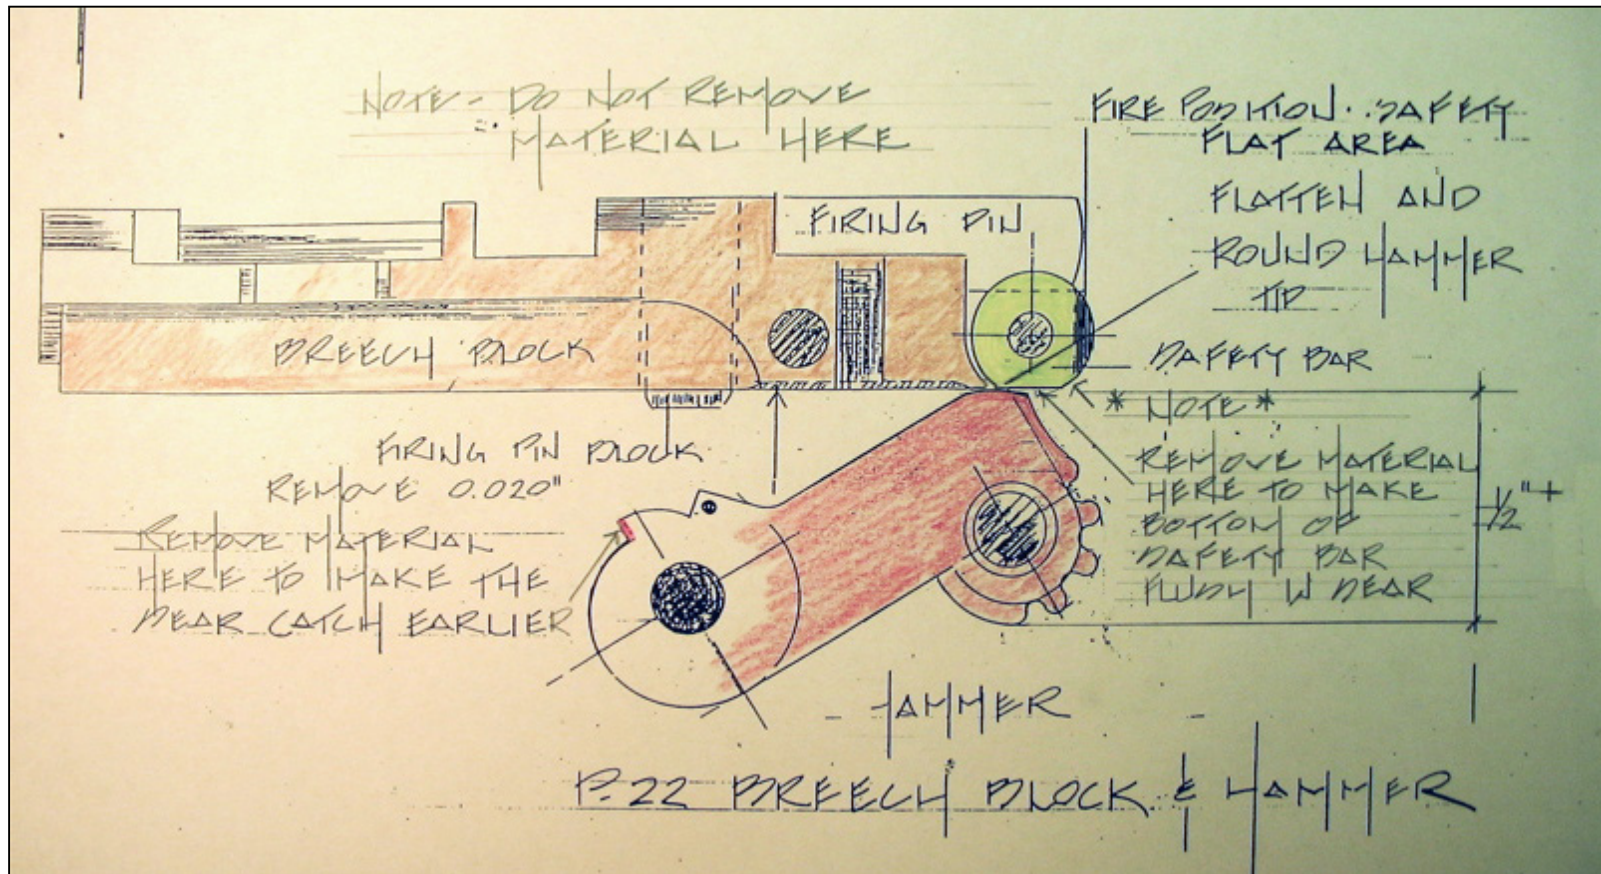 NOTE - DO NOT REMOVE
MATERIAL HERE
FIRE POSITION. SAFETY
FLAT AREA
FLATTEN AND
ROUND HAMMER
TIP
FIRING PIN
BREECH BLOCK
SAFETY BAR
* NOTE *
REMOVE MATERIAL
HERE TO MAKE
BOTTOM OF
SAFETY BAR
FLUSH W SEAR
1/2"+
FIRING PIN BLOCK
REMOVE 0.020"
REMOVE MATERIAL
HERE TO MAKE THE
SEAR CATCH EARLIER
HAMMER
P.22 BREECH BLOCK & HAMMER